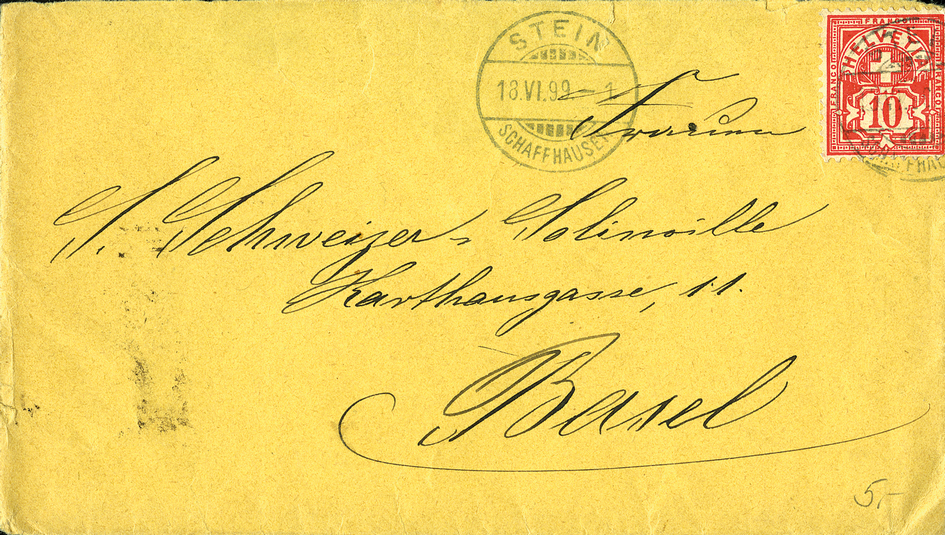 STEIN
18.VI.99-1
SCHAFFHAUSEN
FRANCO
HELVETIA
FRANCO
FRANCO
10
Frau
S. Schweizer-
Karthausgasse, 11.
Basel
5.-